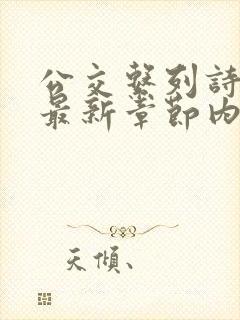 公交系列詩
最新章節内
天傾、